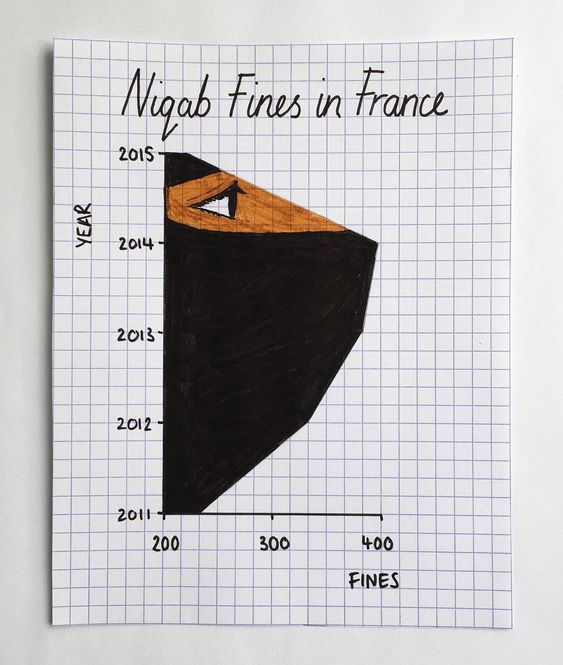 Niqab Fines in France
2015
YEAR
2014
2013
2012
2011
200 300 400
FINES